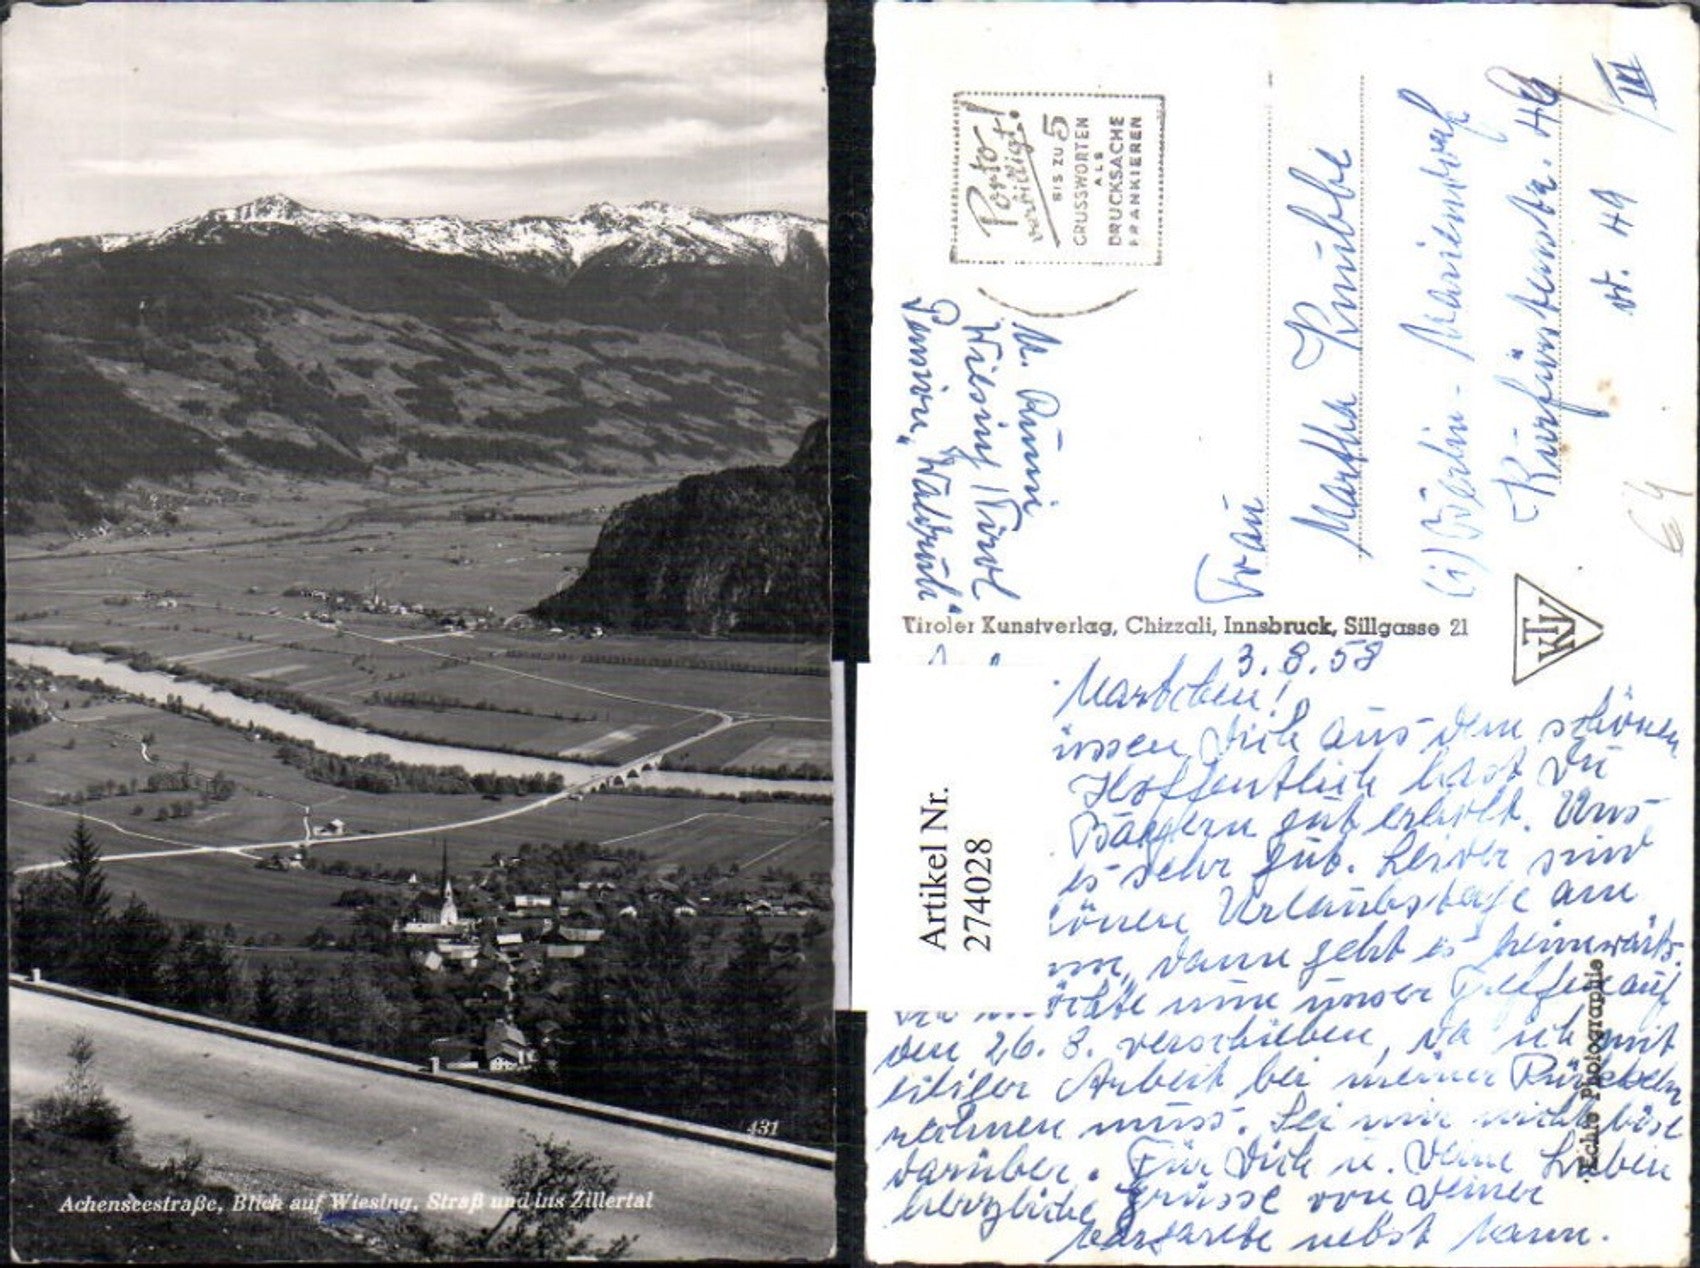 431
Achenseestraße, Blick auf Wiesing, Straß und ins Zillertal
Porto!
verbilligt!
BIS ZU 5
GRUSSWORTEN
ALS
DRUCKSACHE
FRANKIEREN
Wiesing/Tirol
Pension „Waldruh"
Frau
Martha Knübbe
(1) Berlin-Mariendorf
Kurfürstenstr. 49
III
64
Tiroler Kunstverlag, Chizzali, Innsbruck, Sillgasse 21
TKV
Echte Photographie
Artikel Nr.
274028
3.8.58
Martchen!
üssen Dich aus dem schönen
Hoffentlich hast Du
gut erholt. Uns
es sehr gut. Leider sind
önen Urlaubstage am
dann geht es heimwärts.
öchte nun unser Treffen auf
den 26.8. verschieben, da ich mit
eiliger Arbeit bei meiner Rückkehr
rechnen muss. Sei mir nicht böse
darüber. Für Dich u. Deine Lieben
herzliche Grüsse von Deiner
nebst Mann.